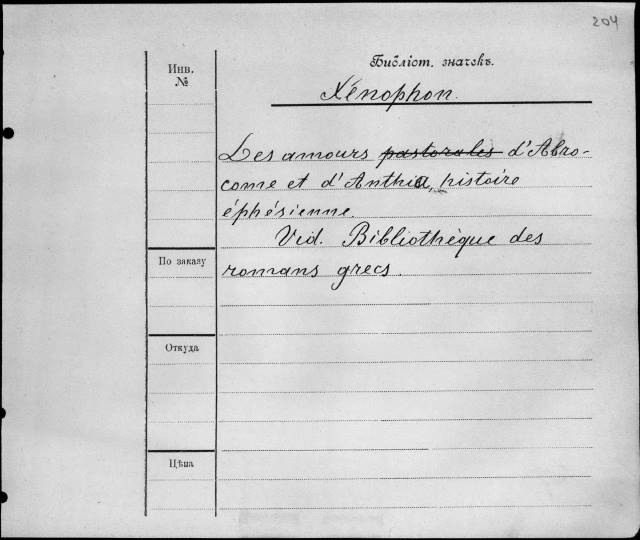 204
Библіот. значекъ.
Инв.
№
Xénophon.
Les amours pastorales d'Abro-
come et d'Anthia, histoire
éphésienne.
Vid. Bibliothèque des
romans grecs.
По заказу
Откуда
Цѣна